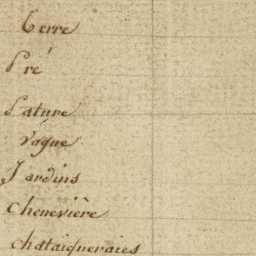 Terre
Pré
Pature
Vague
Jardins
Chenevière
Chataigneraies